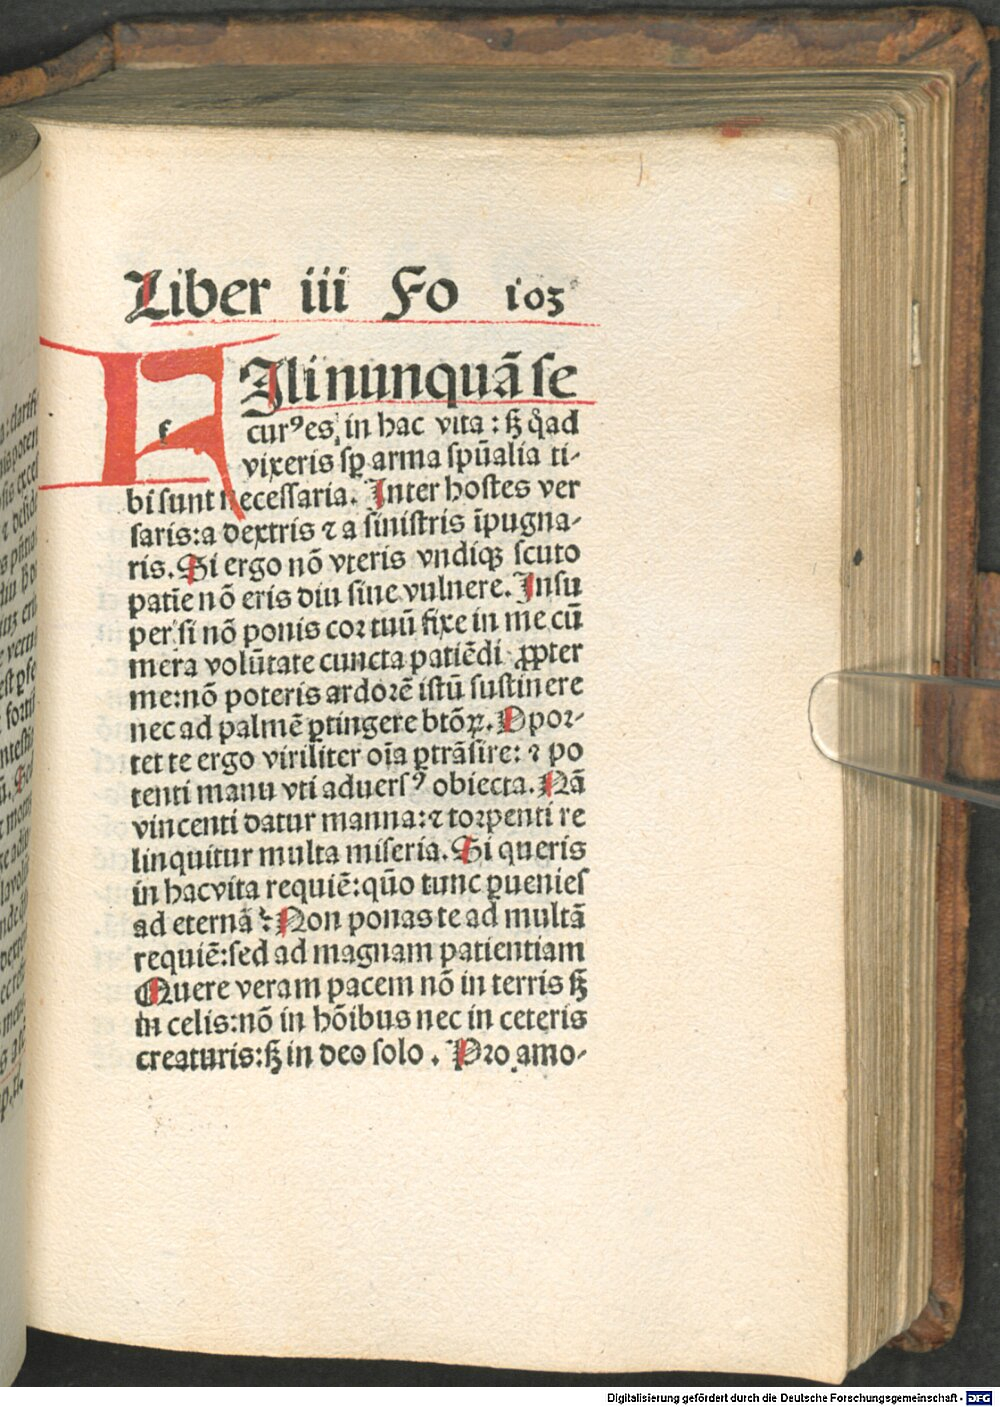 Liber iii Fo 103
FIli nunquā se
curꝰ es in hac vita : sꝫ q̄ad
vixeris sꝑ arma spūalia ti-
bi sunt necessaria. Inter hostes ver
saris: a dextris ⁊ a sinistris īpugna-
ris. Si ergo nō vteris vndiqꝫ scuto
patiē nō eris diu sine vulnere. Insu
per si nō ponis cor tuū fixe in me cū
mera volūtate cuncta patiēdi ꝓpter
me: nō poteris ardorē istū sustinere
nec ad palmē ꝑtingere btōꝝ. Opor-
tet te ergo viriliter oīa ꝑtrāsire: ⁊ po
tenti manu vti aduersꝰ obiecta. Nā
vincenti datur manna: ⁊ torpenti re
linquitur multa miseria. Si queris
in hac vita requiē: quō tunc ꝑuenies
ad eternā? Non ponas te ad multā
requiē: sed ad magnam patientiam
Quere veram pacem nō in terris sꝫ
in celis: nō in hōibus nec in ceteris
creaturis: sꝫ in deo solo. Pro amo-
Digitalisierung gefördert durch die Deutsche Forschungsgemeinschaft - DFG